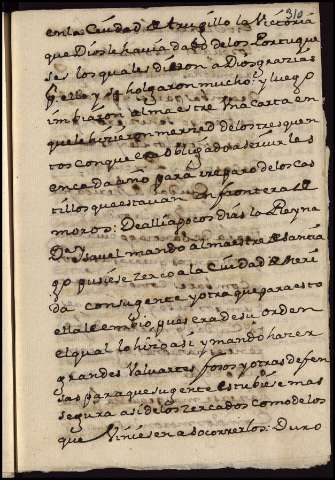 310
en la Ciudad de trugillo la Victoria
que Dios le havia dado de los Portugue
ses los quales dieron a Dios grazias
por ello y se holgaron mucho: y luego
imbiaron al maestre Vna Carta en
que le hizieron merzed de los tres quen
tos con que era obligado a servir les
en cada vno para reparo de los cas
tillos que estavan en frontera de
moros: De alli a pocos dias la Reyna
Dª Ysavel mando al maestre de Santia
go pusiese zerco a la Ciudad de Meri
da con su gente y otra que para esto
ella le embio, pues era de su orden
el qual lo hizo asi y mando hazer
grandes Valuartes, fosos y otras defen
sas para que su gente estubiese mas
segura asi de los zercados como de los
que Viniesen a socorrerlos: Duro